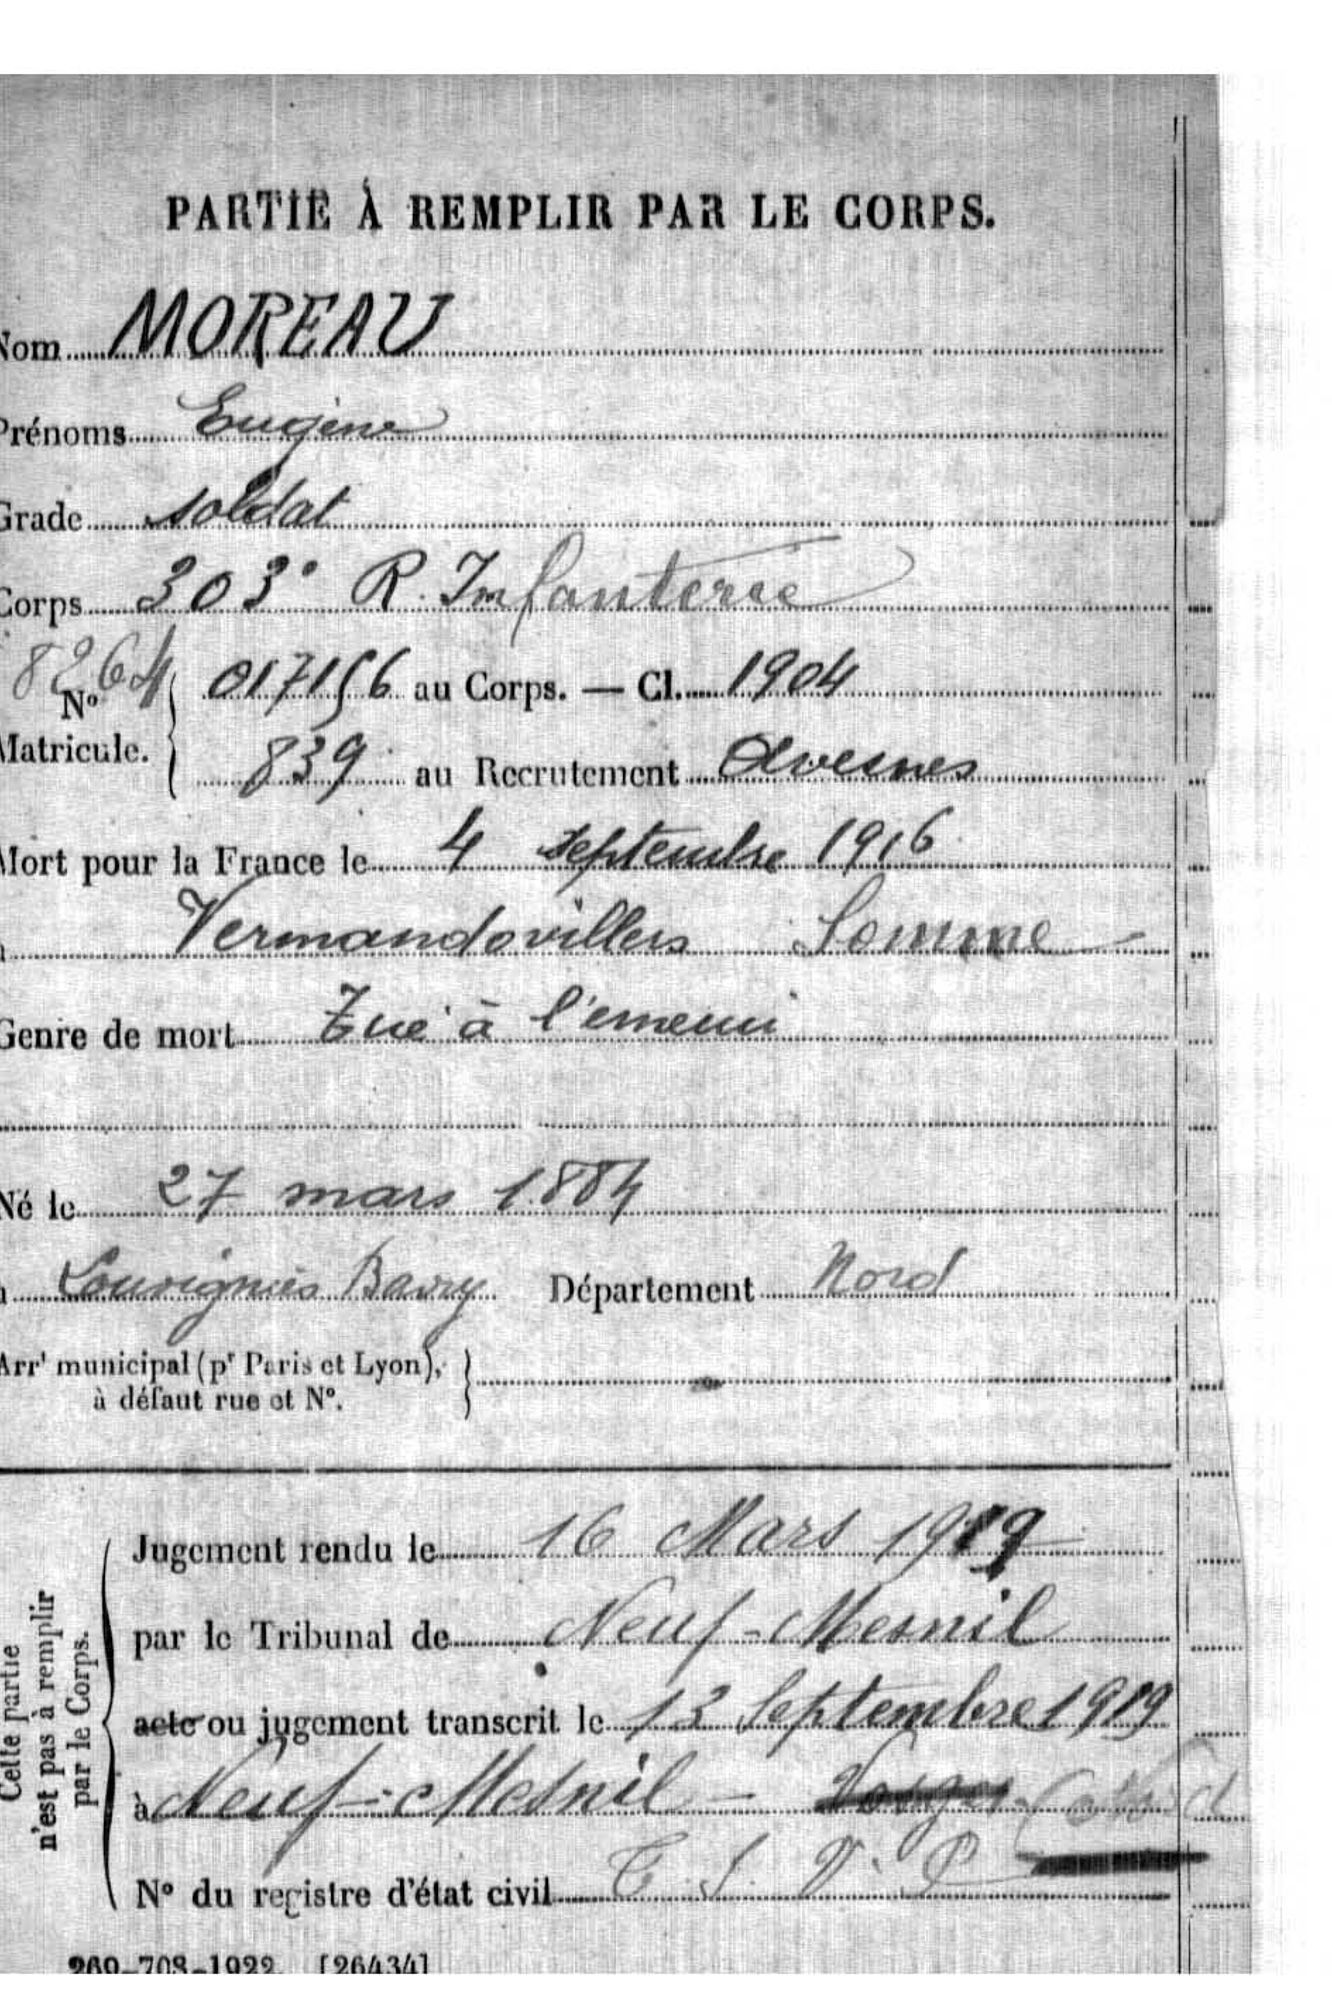 PARTIE À REMPLIR PAR LE CORPS.
Nom MOREAU
Prénoms Eugène
Grade soldat
Corps 303e R. Infanterie
8264
No Matricule. 017156 au Corps. — Cl. 1904
839 au Recrutement Avesnes
Mort pour la France le 4 septembre 1916
à Vermandovillers Somme
Genre de mort Tué à l'ennemi
Né le 27 mars 1884
à Louvignies Bavay Département Nord
Arrt municipal (pr Paris et Lyon),
à défaut rue et N°.
Cette partie
n'est pas à remplir
par le Corps.
Jugement rendu le 16 Mars 1919
par le Tribunal de Neuf-Mesnil
acte ou jugement transcrit le 13 Septembre 1919
à Neuf-Mesnil - Vosges (Nord
N° du registre d'état civil
269-708-1922. [26434]